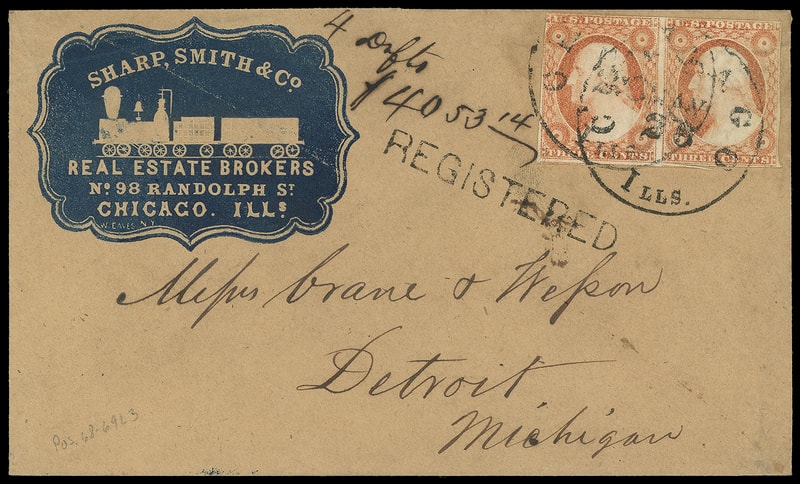 SHARP, SMITH & Co
REAL ESTATE BROKERS
No 98 RANDOLPH ST
CHICAGO. ILLs
W. EAVES. N.Y.
4 Dfts
$4053 14
REGISTERED
U.S. POSTAGE
U.S. POSTAGE
THREE CENTS
ILLS.
ILLS.
Messrs Crane & Wesson
Detroit
Michigan
Pos. 68-6923